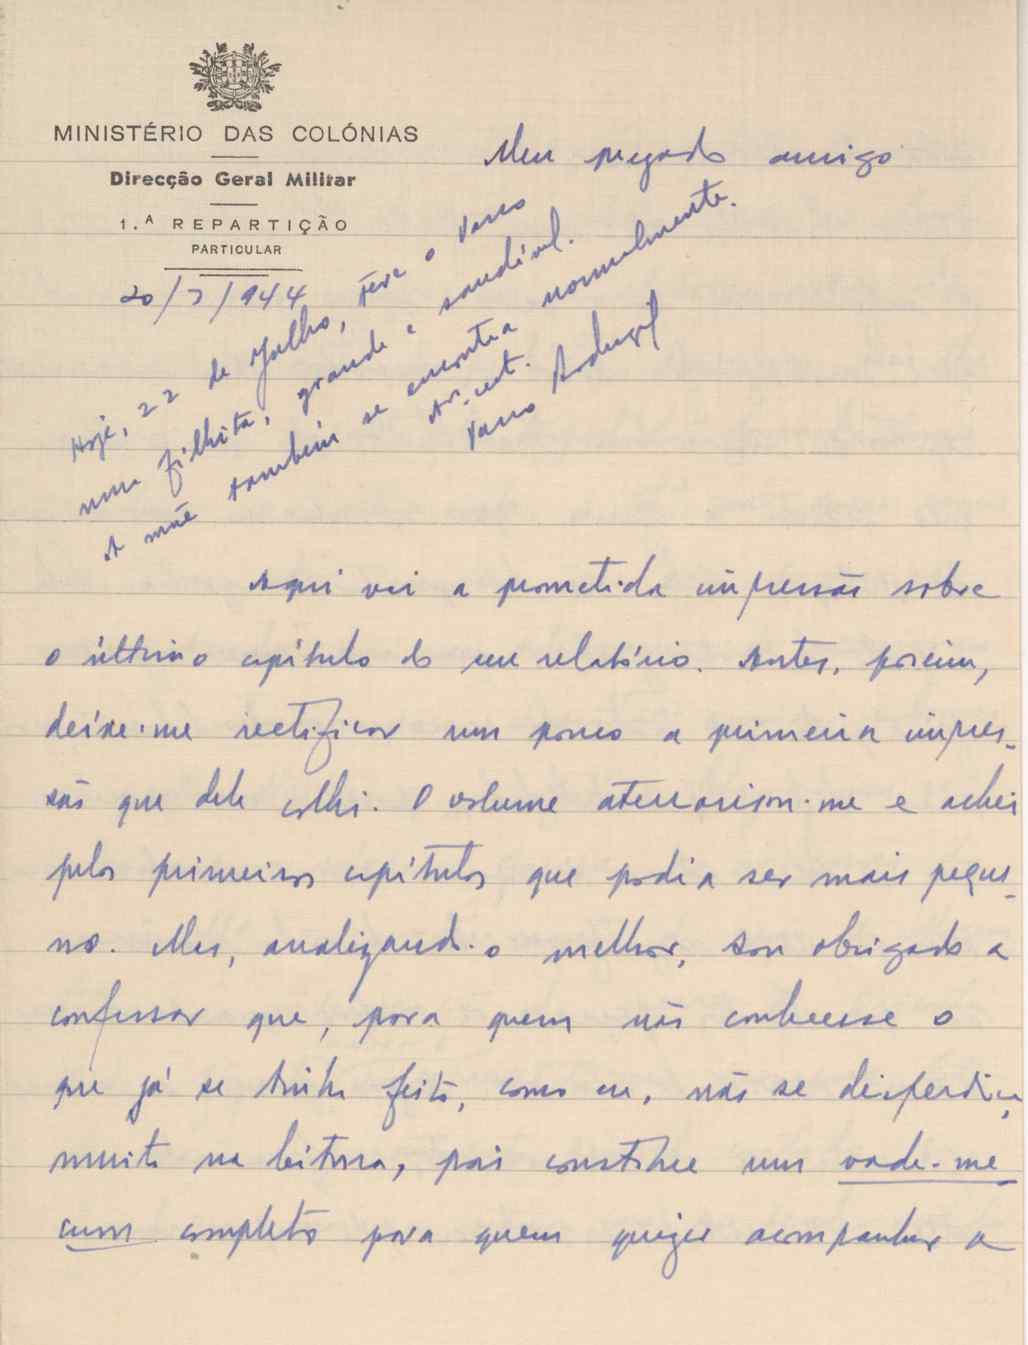 MINISTÉRIO DAS COLÓNIAS
Direcção Geral Militar
1.ª REPARTIÇÃO
PARTICULAR
20/7/944
Meu prezado amigo
Hoje, 22 de Julho, teve o Vasco
uma filhita, grande e saudável.
A mãe também se encontra normalmente.
Vasco
Aqui vai a prometida impressão sobre
o último capítulo do seu relatório. Antes, porém,
deixe-me rectificar um pouco a primeira impres-
são que dele colhi. O volume aterrorisou-me e achei
pelos primeiros capítulos que podia ser mais peque-
no. Mas, analizando-o melhor, sou obrigado a
confessar que, para quem não conhecesse o
que já se tinha feito, como eu, não se disperdiça
muito na leitura, pois constitue um vade-me
cum completo para quem quizer acompanhar a